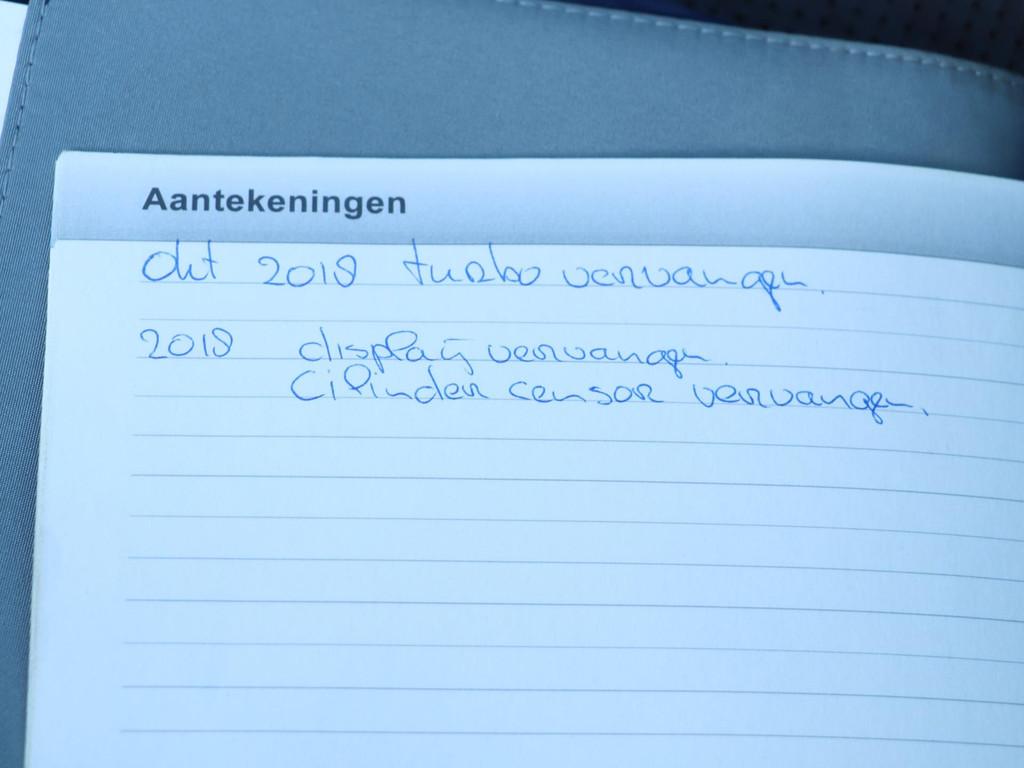 Aantekeningen
Okt 2018 turbo vervangen.
2018 display vervangen.
Cilinder censor vervangen.